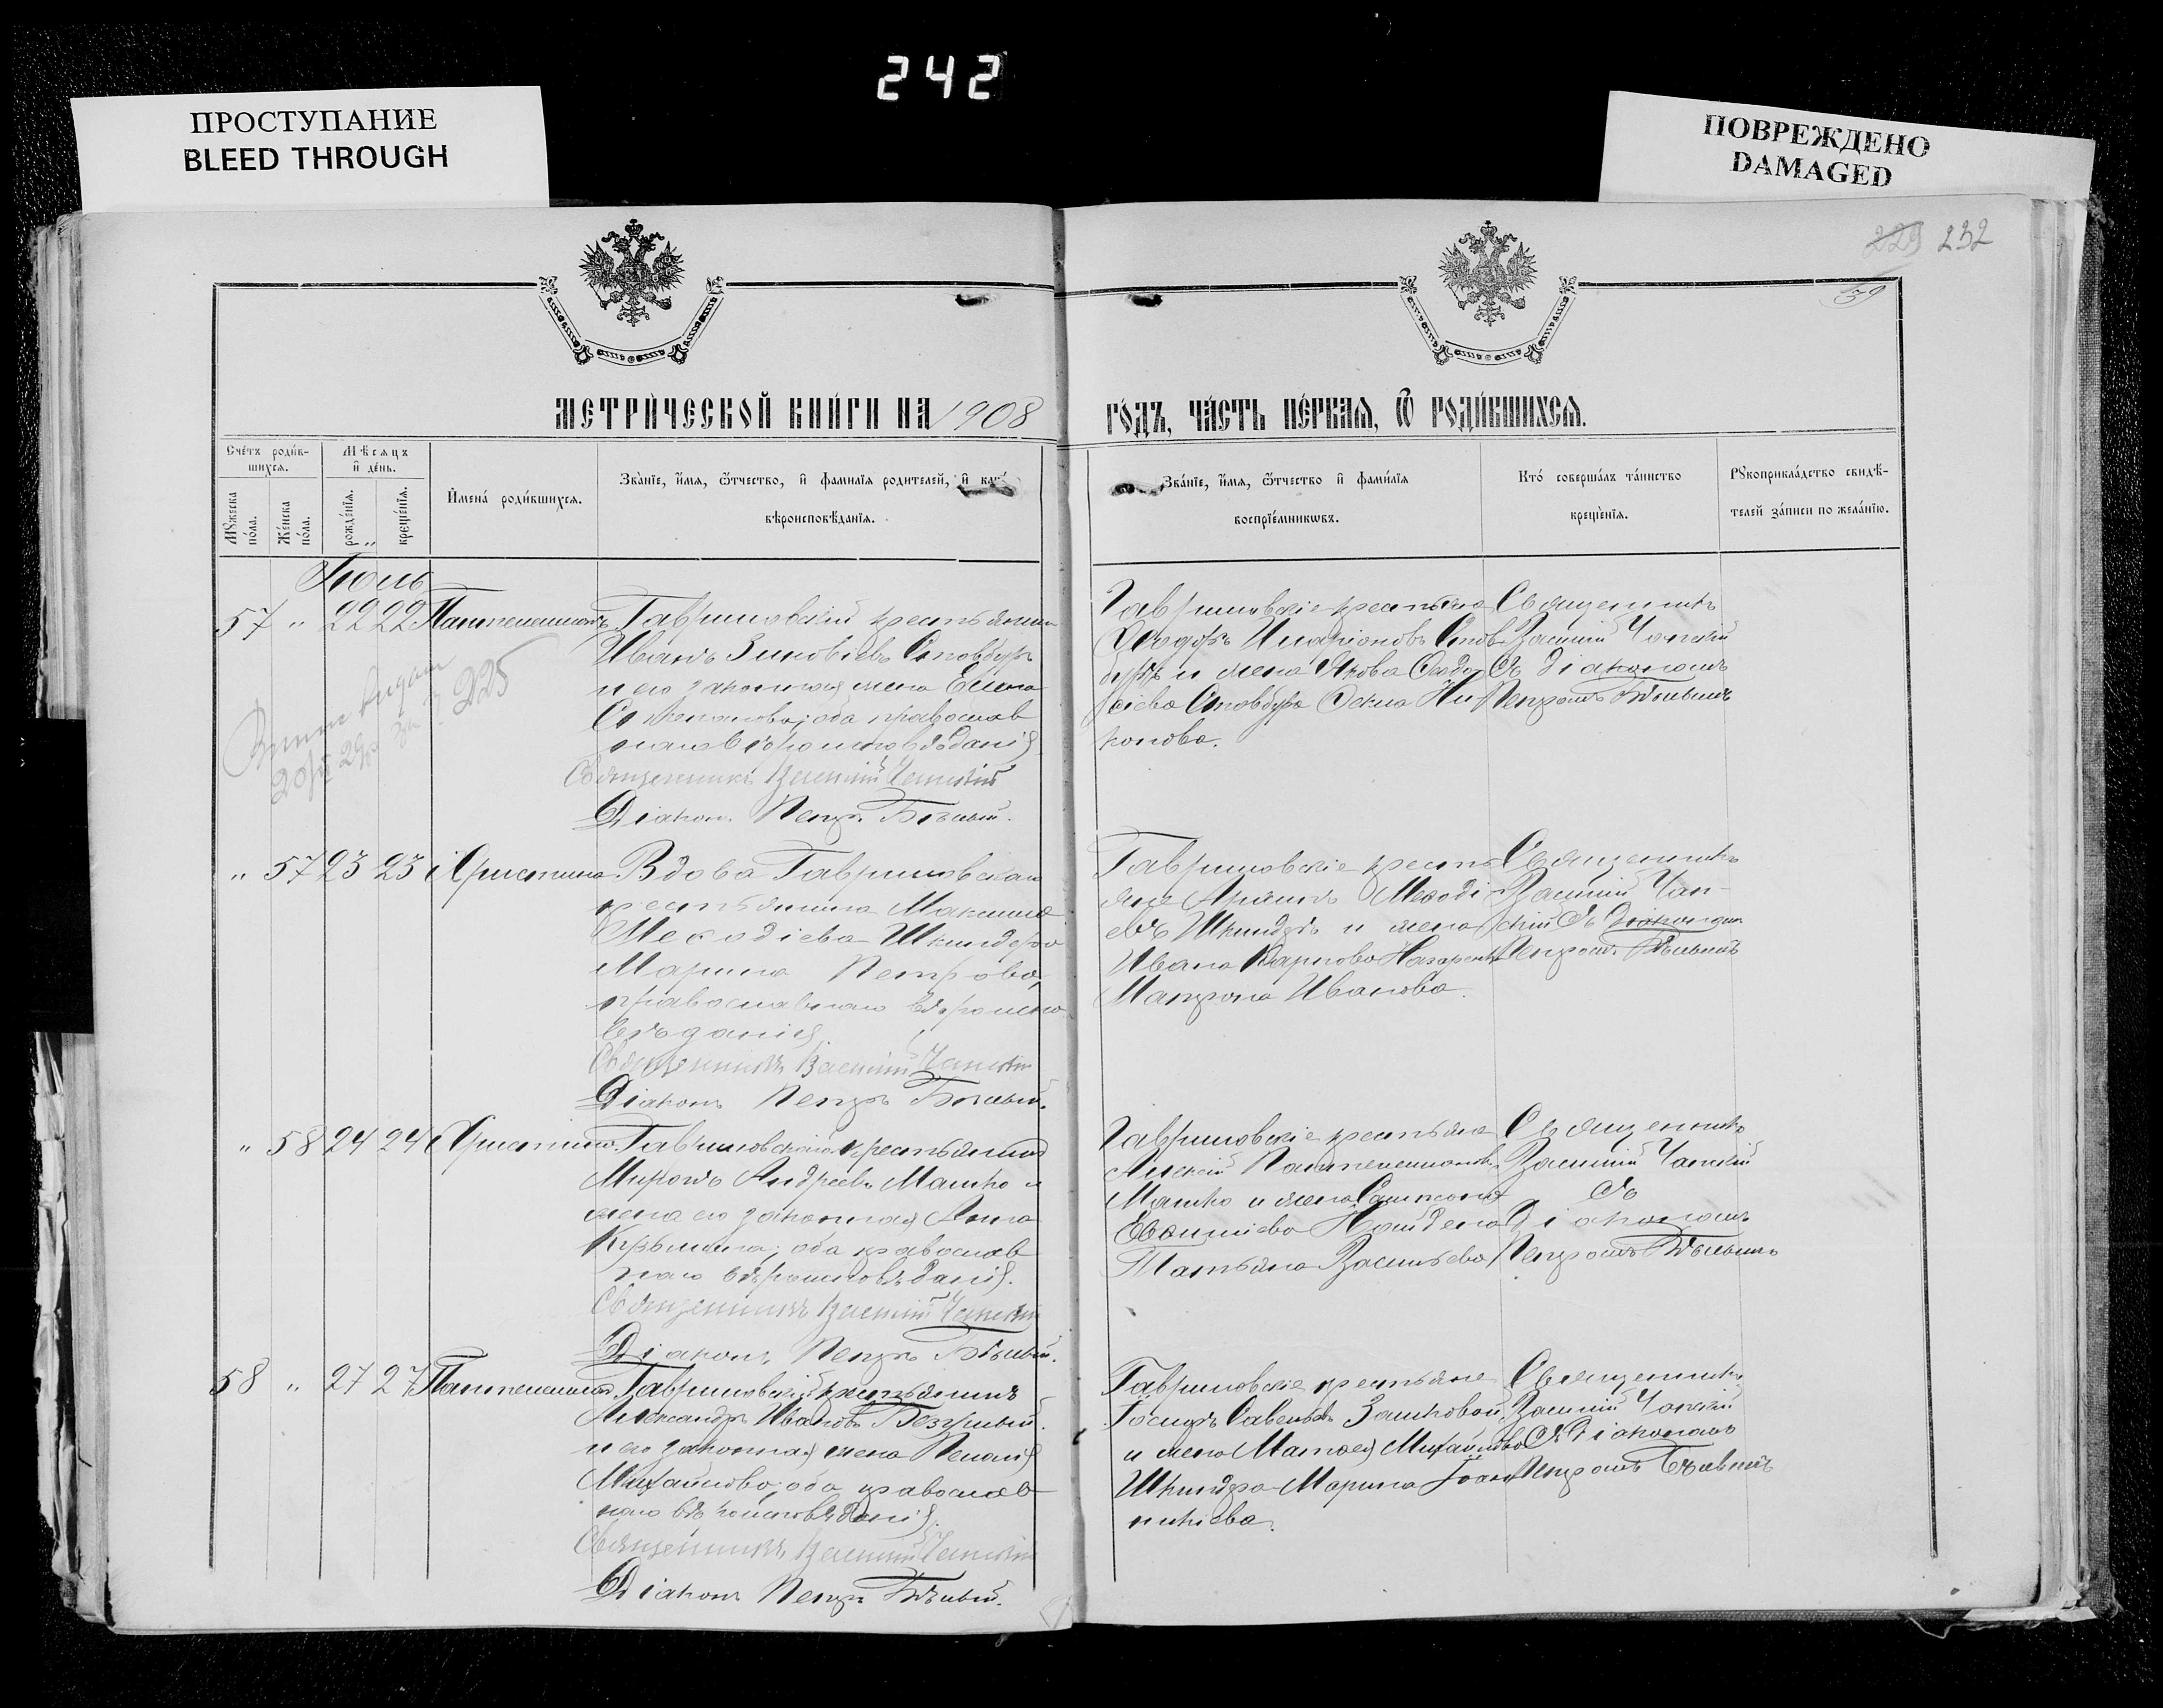 242
ПРОСТУПАНИЕ
BLEED THROUGH
ПОВРЕЖДЕНО
DAMAGED
229 232
59
МЕТРИ́ЧЕСКОЙ КНИ́ГИ НА 1908
ГО́ДЪ, ЧА́СТЬ ПЕ́РВАѦ, Ѿ РОДИ́ВШИХСѦ.
Сче́тъ роди́в-
шихсѧ.
Мꙋжеска по́ла.
Же́нска по́ла.
Мѣ́сѧцъ
и҆ де́нь.
рожде́нїѧ.
креще́нїѧ.
И҆мена́ роди́вшихсѧ.
Зва́нїе, и҆́мѧ, ѻ҆́тчество, и҆ фамилїѧ родителей, и҆
вѣроисповѣданїѧ.
Зва́нїе, и҆́мѧ, ѻ҆́тчество и҆ фами́лїѧ
воспрїе́мникѡвъ.
Кто́ соверша́лъ та́инство
креще́нїѧ.
Рꙋкоприкла́дство свидѣ́-
телей за́писи по жела́нїю.
Іюль
57 " 22 22 Пантелеимонъ
Гавришовскій крестьянинъ
Иванъ Зиновіевъ Стовбуръ
и его законная жена Елена
Степанова; оба православ
наго вѣроисповѣданія
Священникъ Василій Чапскій
Діаконъ Петръ Бѣлый.
Гавришовскіе крестьяне
Ѳеодоръ Иларіоновъ Стов
буръ и жена Якова Ѳеодо
сіева Стовбура Ѳекла Ни
конова.
Священникъ
Василій Чапскій
съ діакономъ
Петромъ Бѣлымъ
225
" 57 23 23 Христина
Вдова Гавришовскаго
крестьянина Максима
Меѳодіева Шкиндера
Марина Петрова,
православнаго вѣроиспо
вѣданія
Священникъ Василій Чапскій
Діаконъ Петръ Бѣлый.
Гавришовскіе кресть
яне Меѳоді
евъ Шкиндеръ и жена
Ивана Карпова Назаренка
Матрона Иванова.
Священникъ
Василій Чап-
скій съ Діакономъ
Петромъ Бѣлымъ
" 58 24 24 Христина
Гавришовскій крестьянинъ
Миронъ Андреевъ Машко и
жена его законная Анна
Кузьмина; оба православ
наго вѣроисповѣданія.
Священникъ Василій Чапскій
Діаконъ Петръ Бѣлый.
Гавришовскіе крестьяне
Алексій Пантелеимоновъ
Машко и жена Сампсона
Евѳиміева
Татьяна Васильева
Священникъ
Василій Чапскій
съ
Діакономъ
Петромъ Бѣлымъ
58 " 27 27 Пантелеимонъ
Гавришовскій крестьянинъ
Александръ Ивановъ Безуглый
и его законная жена Пелагія
Михайлова; оба православ
наго вѣроисповѣданія.
Священникъ Василій Чапскій
Діаконъ Петръ Бѣлый.
Гавришовскіе крестьяне
Іосифъ Савельевъ
и жена Матѳея Михайлова
Шкиндера Марина Іоан
никіева.
Священникъ
Василій Чапскій
съ Діакономъ
Петромъ Бѣлымъ